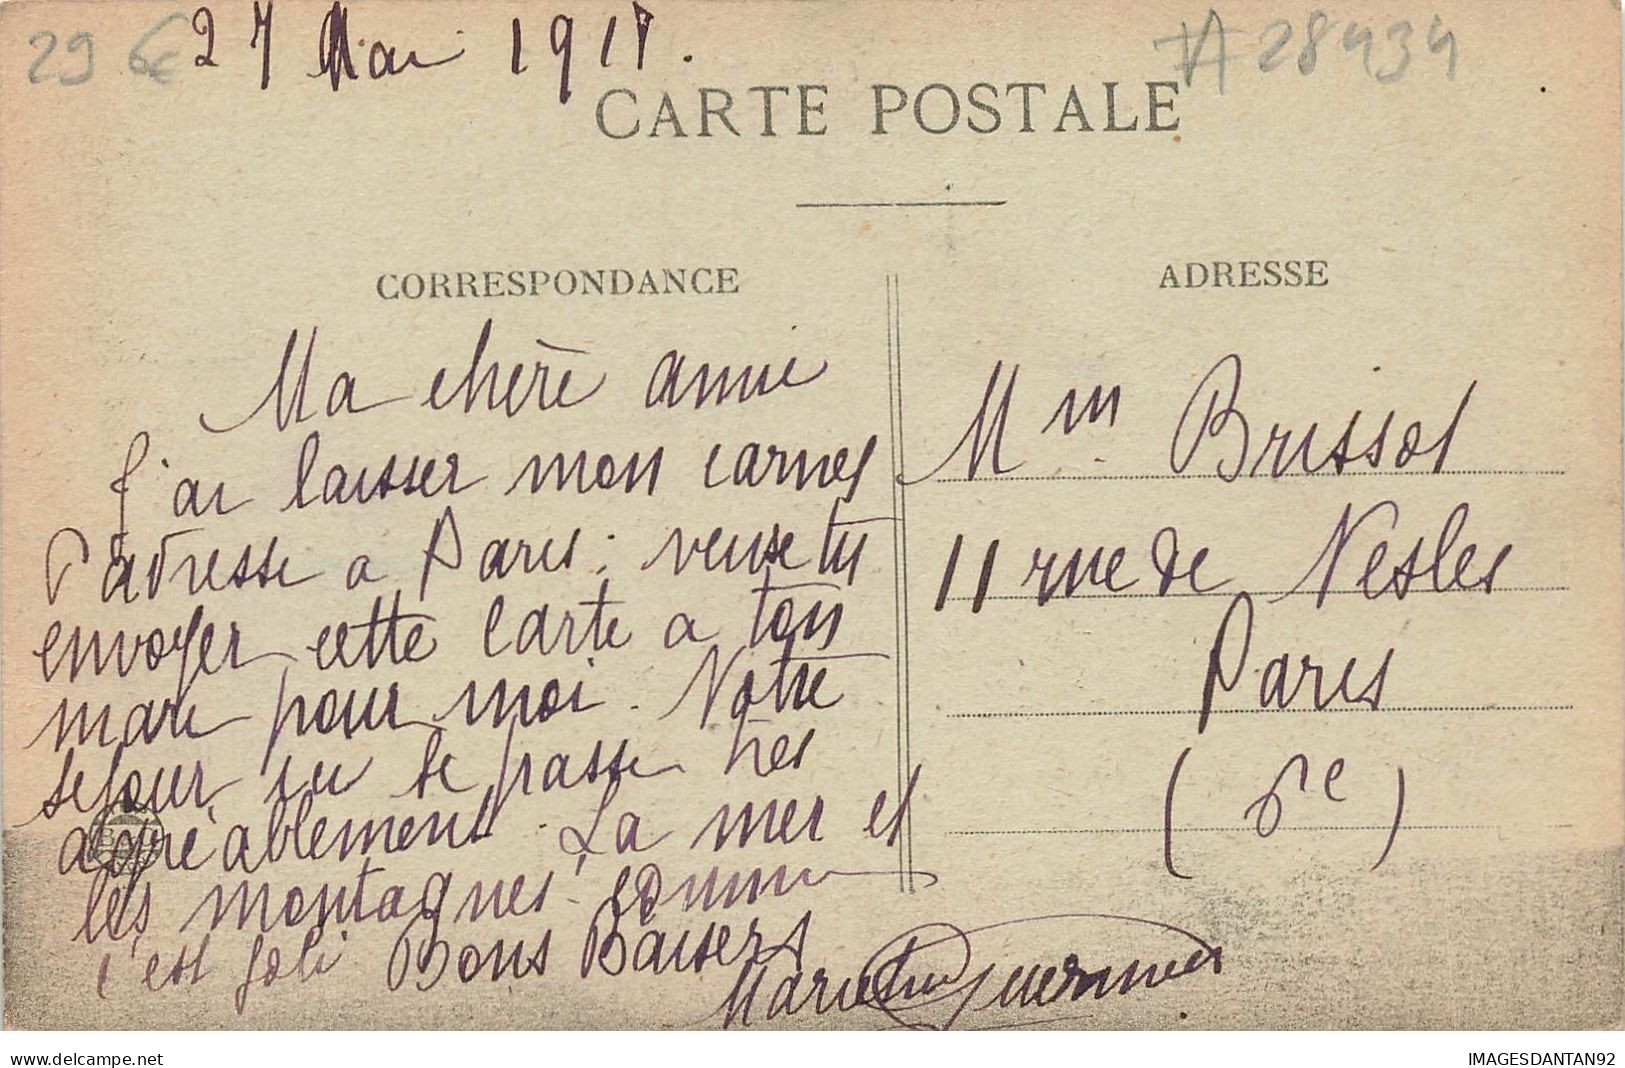 29 € 27 Mai 191
#28434
CARTE POSTALE
CORRESPONDANCE
Ma chère amie
J'ai laisser mon carnet
d'adresse a Paris; veuse tu
envoyer cette carte a ton
mari pour moi. Notre
sejour ici se passe tres
agréablement. La mer et
les montagnes comme
c'est joli Bons Baisers
Marie
ADRESSE
Mm Brissot
11 rue de Nesles
Paris
(6e)
www.delcampe.net
IMAGESDANTAN92